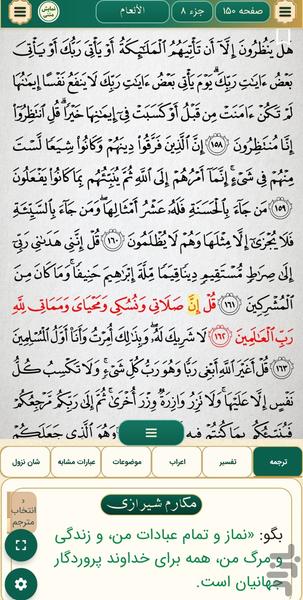 صفحه ۱۵۰
جزء ۸
الأنعام
نمایش متنی
هَلْ يَنْظُرُونَ إِلَّا أَنْ تَأْتِيَهُمُ الْمَلَائِكَةُ أَوْ يَأْتِيَ رَبُّكَ أَوْ يَأْتِيَ
بَعْضُ ءَايَاتِ رَبِّكَ ۗ يَوْمَ يَأْتِي بَعْضُ ءَايَاتِ رَبِّكَ لَا يَنْفَعُ نَفْسًا إِيمَانُهَا
لَمْ تَكُنْ ءَامَنَتْ مِنْ قَبْلُ أَوْ كَسَبَتْ فِي إِيمَانِهَا خَيْرًا ۗ قُلِ انْتَظِرُوا
إِنَّا مُنْتَظِرُونَ ﴿١٥٨﴾ إِنَّ الَّذِينَ فَرَّقُوا دِينَهُمْ وَكَانُوا شِيَعًا لَسْتَ
مِنْهُمْ فِي شَيْءٍ ۚ إِنَّمَا أَمْرُهُمْ إِلَى اللَّهِ ثُمَّ يُنَبِّئُهُمْ بِمَا كَانُوا يَفْعَلُونَ
﴿١٥٩﴾ مَنْ جَاءَ بِالْحَسَنَةِ فَلَهُ عَشْرُ أَمْثَالِهَا ۖ وَمَنْ جَاءَ بِالسَّيِّئَةِ
فَلَا يُجْزَىٰ إِلَّا مِثْلَهَا وَهُمْ لَا يُظْلَمُونَ ﴿١٦٠﴾ قُلْ إِنَّنِي هَدَانِي رَبِّي
إِلَىٰ صِرَاطٍ مُسْتَقِيمٍ دِينًا قِيَمًا مِلَّةَ إِبْرَاهِيمَ حَنِيفًا ۚ وَمَا كَانَ مِنَ
الْمُشْرِكِينَ ﴿١٦١﴾ قُلْ إِنَّ صَلَاتِي وَنُسُكِي وَمَحْيَايَ وَمَمَاتِي لِلَّهِ
رَبِّ الْعَالَمِينَ ﴿١٦٢﴾ لَا شَرِيكَ لَهُ ۖ وَبِذَٰلِكَ أُمِرْتُ وَأَنَا أَوَّلُ الْمُسْلِمِينَ
﴿١٦٣﴾ قُلْ أَغَيْرَ اللَّهِ أَبْغِي رَبًّا وَهُوَ رَبُّ كُلِّ شَيْءٍ ۚ وَلَا تَكْسِبُ كُلُّ
نَفْسٍ إِلَّا عَلَيْهَا ۚ وَلَا تَزِرُ وَازِرَةٌ وِزْرَ أُخْرَىٰ ۚ ثُمَّ إِلَىٰ رَبِّكُمْ مَرْجِعُكُمْ
فَيُنَبِّئُكُمْ بِمَا كُنْتُمْ فِيهِ وَهُوَ الَّذِي جَعَلَكُمْ
ترجمه
تفسیر
اعراب
موضوعات
عبارات مشابه
شان نزول
مکارم شیرازی
انتخاب مترجم
بگو: «نماز و تمام عبادات من، و زندگی
و مرگ من، همه برای خداوند پروردگار
جهانیان است.
بازار